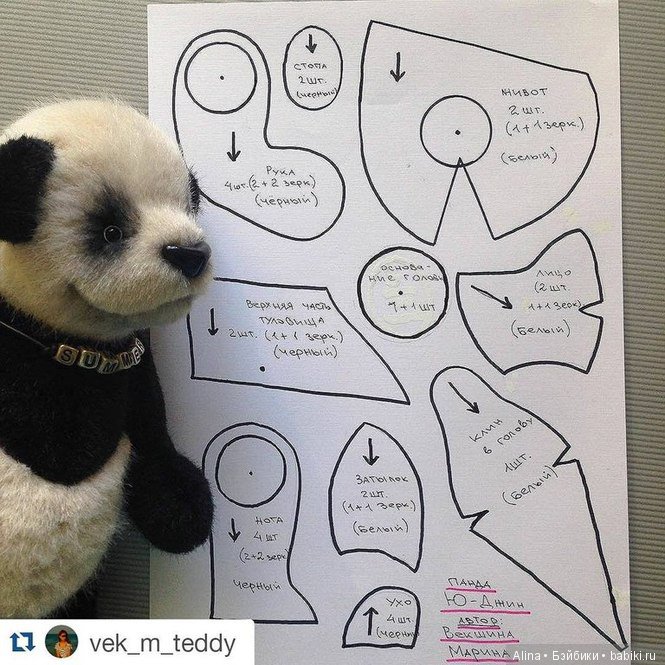 СТОПА
2 ШТ.
(чёрный)
ЖИВОТ
2 ШТ.
(1+1 зерк.)
(Белый)
РУКА
4 шт. (2+2 зерк)
(чёрный)
ОСНОВА-
НИЕ ГОЛОВЫ
1+1 ШТ
ЛИЦО
(2 ШТ.
1+1 зерк)
(Белый)
ВЕРХНЯЯ ЧАСТЬ
ТУЛОВИЩА
2 ШТ. (1+1 зерк.)
(чёрный)
SUMME
КЛИН
В ГОЛОВУ
1 ШТ.
(Белый)
ЗАТЫЛОК
2 ШТ.
(1+1 зерк)
(Белый)
НОГА
4 ШТ
(2+2 зерк)
чёрный
УХО
4 ШТ.
(чёрный)
ПАНДА
Ю-ДЖИН
АВТОР:
ВЕКШИНА
МАРИНА
vek_m_teddy
Alina • Бэйбики • babiki.ru